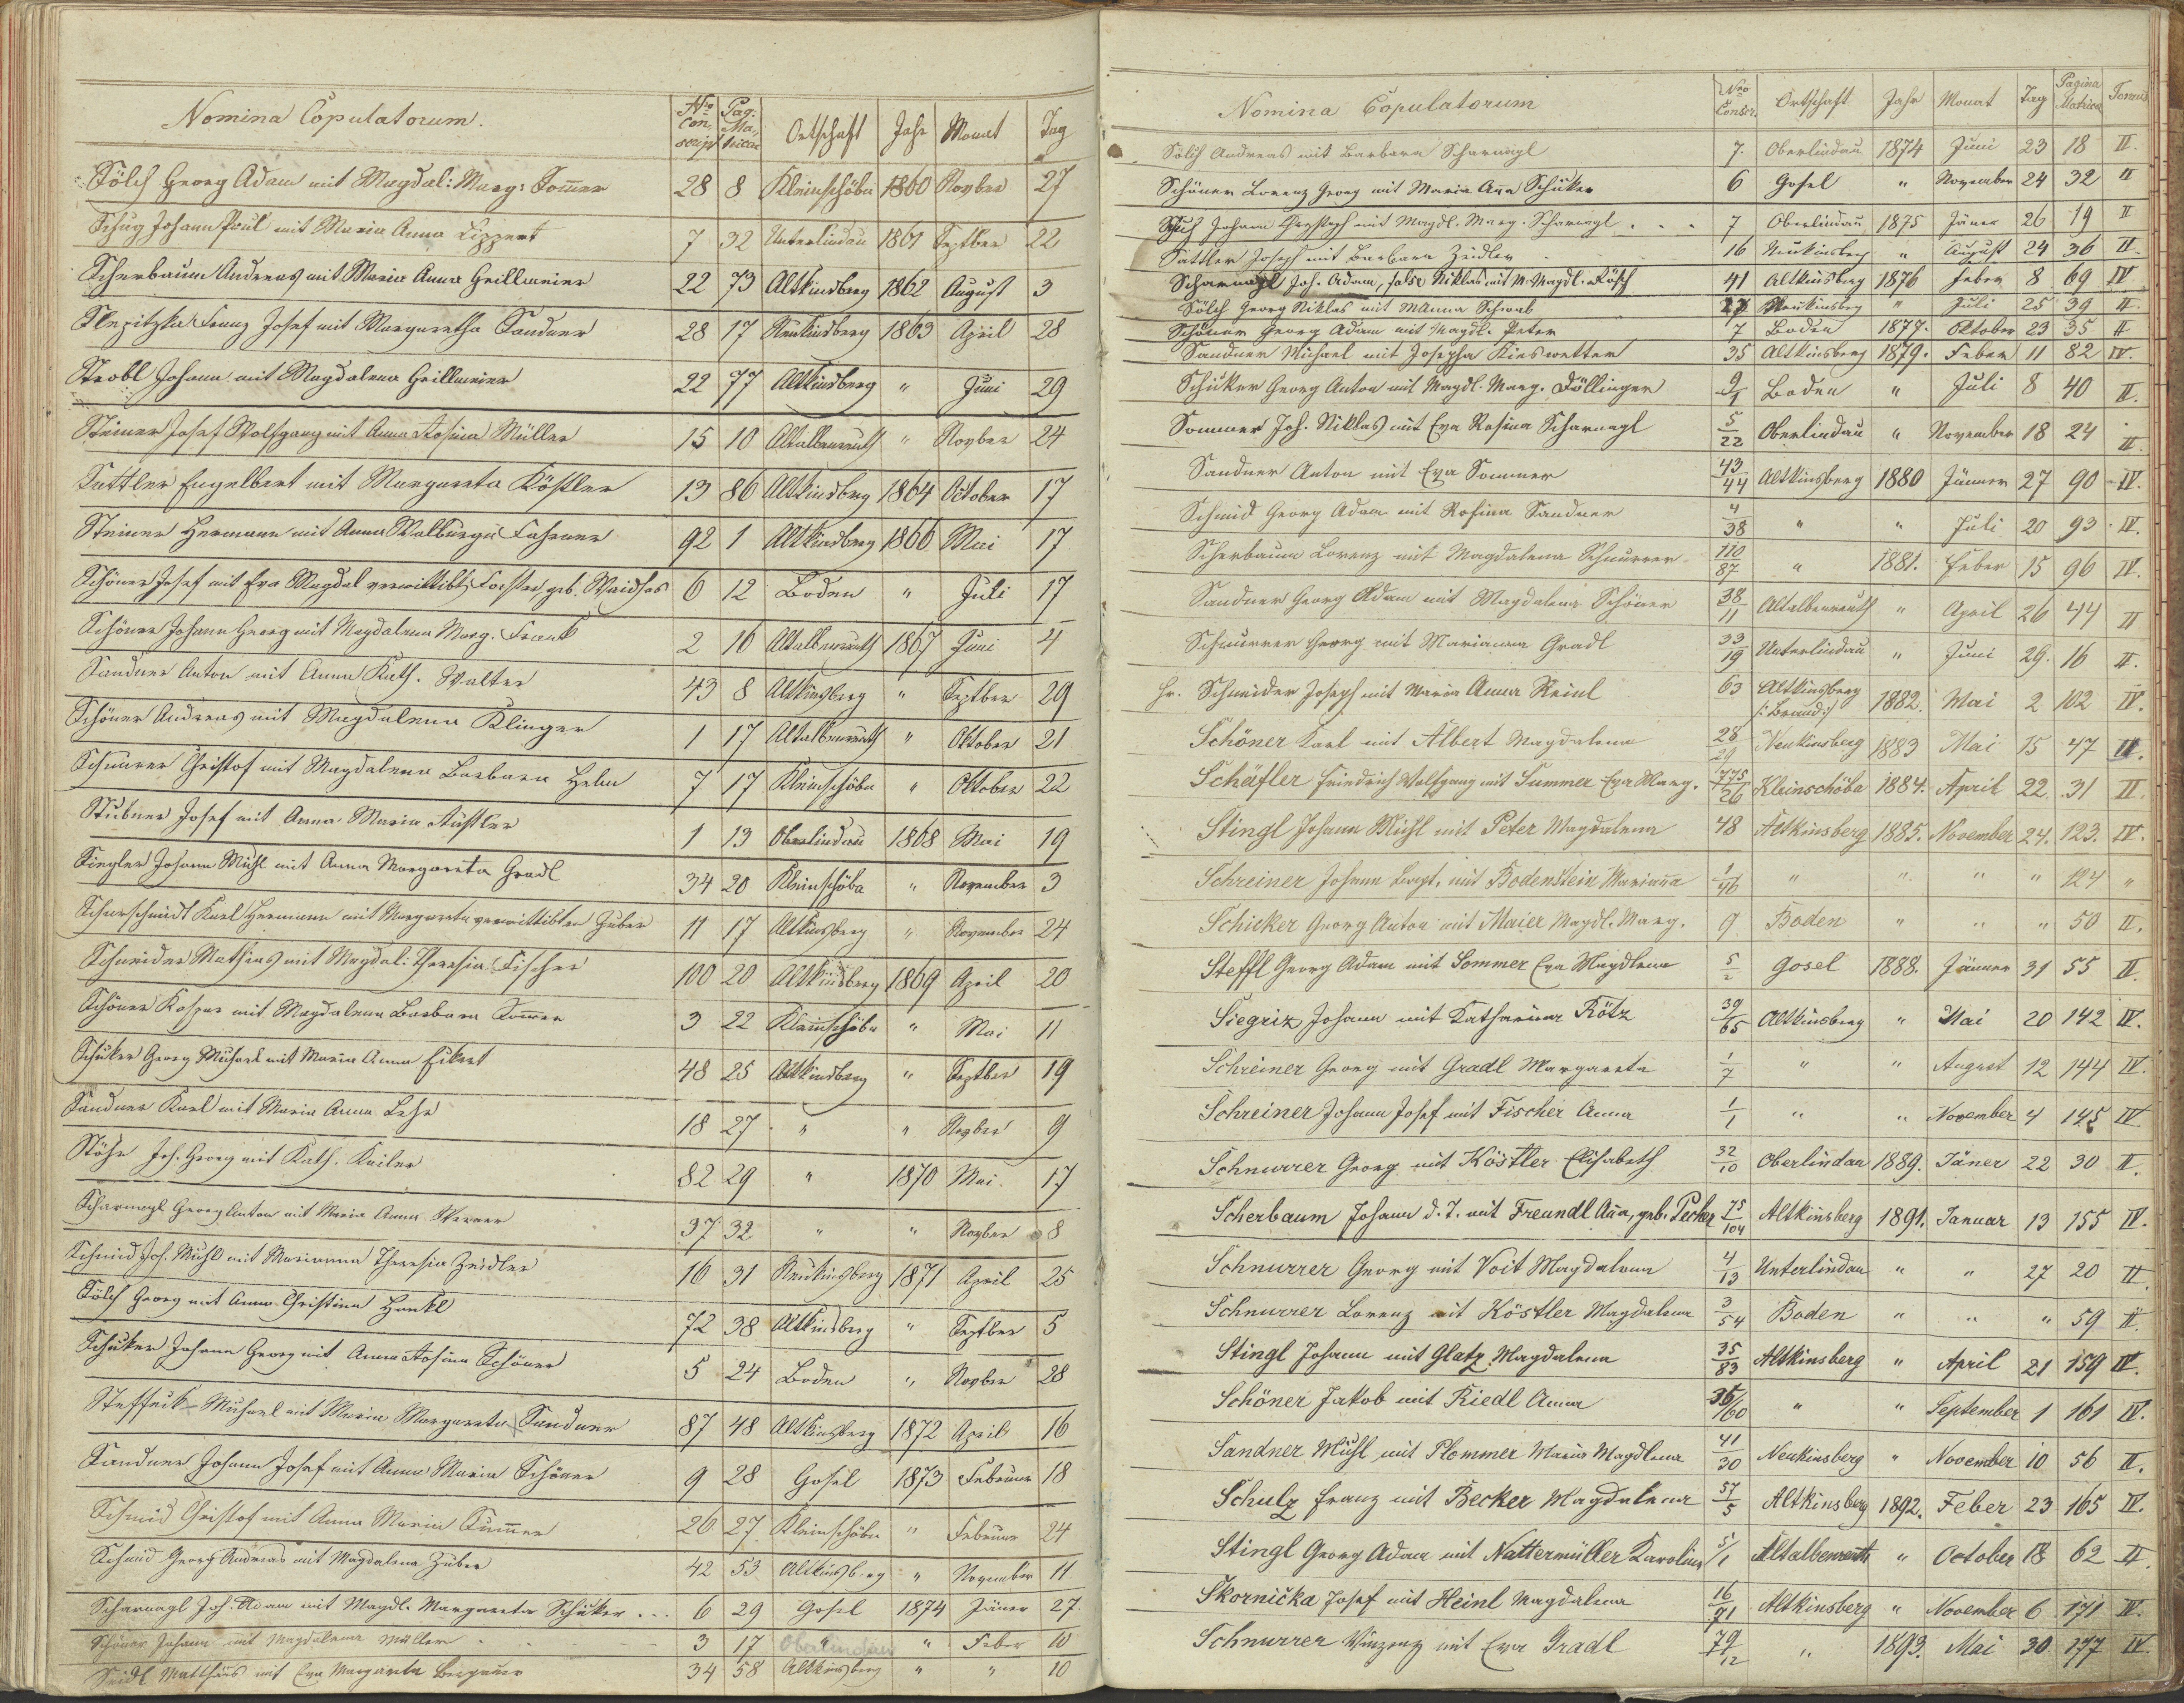 Nomina Copulatorum. Nro Conscript Pag. Matricae Ortschaft Jahr Monat Tag
Sölch Georg Adam mit Magdal: Marg: Som̅er 28 8 Kleinschöba 1860 Novber 27
Schug Johann Paul mit Maria Anna Lippert 7 32 Unterlindau 1861 Septber 22
Scherbaum Andreas mit Maria Anna Grillmeier 22 73 Altkindsberg 1862 August 3
Slepitzka Franz Josef mit Margaretha Sandner 28 17 Neukindsberg 1863 April 28
Strobl Johann mit Magdalena Grillmeier 22 77 Altkindsberg " Juni 29
Steiner Josef Wolfgang mit Anna Rosina Müller 15 10 Altalbenreuth " Novber 24
Sattler Engelbert mit Margareta Köstler 13 86 Altkindsberg 1864 October 17
Steiner Hermann mit Anna Walburga 92 1 Altkindsberg 1866 Mai 17
Schöner Josef mit Eva Magdal verwittibt. Forster, geb. Waidhas 6 12 Boden " Juli 17
Schöner Johann Georg mit Magdalena Marg. Frank 2 16 Altalbenreuth 1867 Juni 4
Sandner Anton mit Anna Kath. Walter 43 8 Altkinsberg " Septber 29
Schöner Andreas mit Magdalena Klinger 1 17 Altalbenreuth " Oktober 21
Schnurer Christof mit Magdalena Barbara Helm 7 17 Kleinschöba " Oktober 22
Stübner Josef mit Anna Maria 1 13 Oberlindau 1868 Mai 19
Siegler Johann Michl mit Anna Margareta Gradl 34 20 Kleinschöba " November 3
Scharschmidt Karl Hermann mit Margareta verwittibten Huber 11 17 Altkinsberg " November 24
Schneider Mathias mit Magdal: Theresia Fischer 100 20 Altkindsberg 1869 April 20
Schöner Kaspar mit Magdalena Barbara Som̅er 3 22 Kleinschöba " Mai 11
Schüker Georg Michael mit Maria Anna Eckert 48 25 Altkindsberg " Septber 19
Sandner Karl mit Maria Anna Lehr 18 27 " " Novber 9
Stöhr Joh. Georg mit Kath. Keiler 82 29 " 1870 Mai 17
Scharnagl Georg Anton mit Maria Anna Werner 37 32 " " Novber 8
Schmid Joh. Michl mit Marianna Theresia Zeidler 16 31 Neukinsberg 1871 April 25
Sölch Georg mit Anna Christina Hankl 72 38 Altkindsberg " Septber 5
Schüker Johann Georg mit Anna Rosina Schöner 5 24 Boden " Novber 28
Steffek Michael mit Maria Margareta Sandner 87 48 Altkinsberg 1872 April 16
Sandner Johann Josef mit Anna Maria Schöner 9 28 Gosel 1873 Februar 18
Schmid Christof mit Anna Maria Sum̅er 26 27 Kleinschöba " Februar 24
Schmid Georg Andreas mit Magdalena Huber 42 53 Altkinsberg " November 11
Scharnagl Joh. Adam mit Magdl. Margareta Schüker ... 6 29 Gosel 1874 Jäner 27.
Schöner Johann mit Magdalena Müller 3 17 Oberlindau " Feber 10
Seidl Matthäus mit Eva Margareta 34 58 Altkinsberg " " 10
Nomina Copulatorum Nro Conscr. Ortschaft Jahr Monat Tag Pagina Matricae Tomus
Sölch Andreas mit Barbara Scharnagl 7. Oberlindau 1874 Juni 23 18 II.
Schöner Lorenz Georg mit Maria Anna Schüker 6 Gosel " November 24 32 II
Schuh Johann Christoph mit Magdl. Marg. Scharnagl . . . 7 Oberlindau 1875 Jäner 26 19 II
Sattler Joseph mit Barbara Zeidler 16 Neukinsberg " August 24 36 II.
Scharnagl Joh. Adam, false Niklas mit M. Magdl. Kösch 41 Altkinsberg 1876 Feber 8 69 IV.
Sölch Georg Niklas mit MAnna Schwab 27 Neukinsberg " Juli 25 39 II.
Schöner Georg Adam mit Magdl. Peter 7 Boden 1877. Oktober 23 35 II
Sandner Michael mit Josepha Kieswetter 35 Altkinsberg 1879. Feber 11 82 IV.
Schüker Georg Anton mit Magdl. Marg. Döllinger 9/1 Boden " Juli 8 40 II.
Sommer Joh. Niklas mit Eva Rosina Scharnagl 5/22 Oberlindau " November 18 24 II.
Sandner Anton mit Eva Sommer 43/44 Altkinsberg 1880 Jänner 27 90 IV.
Schmid Georg Adam mit Rosina Sandner 4/38 " " Juli 20 93. IV.
Scherbaum Lorenz mit Magdalena Schnurrer 110/87 " 1881. Feber 15 96 IV.
Sandner Georg Adam mit Magdalena Schöner 38/11 Altalbenreuth " April 26 44 II
Schnurrer Georg mit Marianna Gradl 33/19 Unterlindau " Juni 29. 16 II.
Hr. Schneider Joseph mit Maria Anna Reinl 63 Altkinsberg /: Brand :/ 1882. Mai 2 102 IV.
Schöner Karl mit Albert Magdalena 28/29 Neukinsberg 1883 Mai 15 47 II.
Schäfler Friedrich Wolfgang mit Summer Eva Marg. 775/26 Kleinschöba 1884. April 22. 31 II.
Stingl Johann Michl mit Peter Magdalena 48 Altkinsberg 1885. November 24. 123. IV.
Schreiner Johann Bapt. mit Bodenstein Mariana 1/46 " " " " 124 "
Schicker Georg Anton mit Maier Magdl. Marg. 9 Boden " " " 50 II.
Steffl Georg Adam mit Sommer Eva Magdlena 5/2 Gosel 1888. Jänner 31 55 II.
Siegriz Johann mit Katharina Rötz 39/65 Altkinsberg " Mai 20 142 IV.
Schreiner Georg mit Gradl Margareta 1/7 " " August 12 144 IV.
Schreiner Johann Josef mit Fischer Anna 1/1 " " November 4 145 IV.
Schnurrer Georg mit Köstler Elisabeth 32/10 Oberlindau 1889. Jäner 22 30 II.
Scherbaum Johann d. J. mit Freundl Ana, geb. Pecher 75/104 Altkinsberg 1891. Januar 13 155 IV.
Schnurrer Georg mit Voit Magdalena 4/13 Unterlindau " " 27 20 II.
Schnurrer Lorenz mit Köstler Magdalena 3/54 Boden " " " 59 II.
Stingl Johann mit Glatz Magdalena 35/83 Altkinsberg " April 21 159 IV.
Schöner Jakob mit Riedl Anna 35/60 " " September 1 161 IV.
Sandner Michl mit Plommer Maria Magdlena 41/30 Neukinsberg " November 10 56 II.
Schulz Franz mit Becker Magdalena 57/5 Altkinsberg 1892. Feber 23 165 IV.
Stingl Georg Adam mit Nattermüller Karolina 5/1 Altalbenreuth " October 18 62 II.
Skornička Josef mit Heinl Magdalena 16/71 Altkinsberg " November 6 171 IV.
Schnurrer Vinzenz mit Eva Gradl 79/12 " 1893. Mai 30. 177 IV.